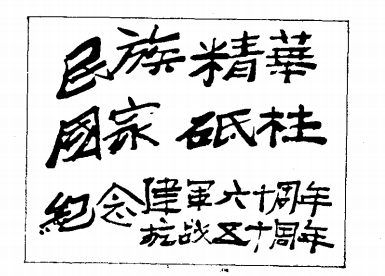 民族精華
國家砥柱
紀念建军六十周年
抗战五十周年